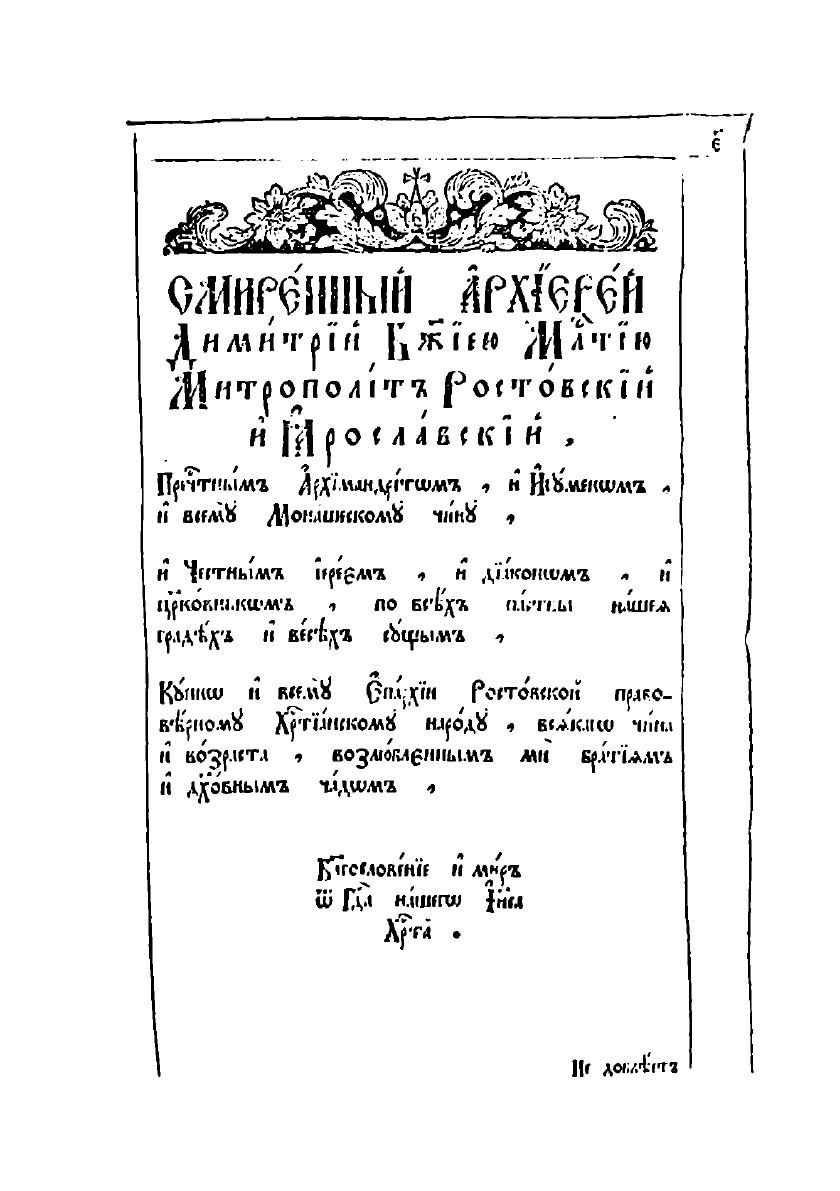 є҃
СМИРЕ́ННЫЙ А҆РХЇЕРЕ́Й
Дими́трїй Бж҃їею Млⷭ҇тїю
Митрополі́тъ Росто́вскїй
и҆ Ꙗ҆росла́вскїй ,
Преч ⷭ҇тны́мъ А҆рхїмандрі́тѡмъ , и҆ И҆гꙋ́менѡмъ ,
и҆ всемꙋ̀ Мона́шескомꙋ чи́нꙋ ,
и҆ Честны́мъ і҆ере́ємъ , и҆ дїа́конѡмъ , и҆
цр҃ко́вникѡмъ , по всѣ́хъ па́ствы на́шеѧ
градѣ́хъ и҆ ве́сѣхъ сꙋ́щымъ ,
Кꙋ́пнѡ и҆ всемꙋ̀ Є҆па́рхїи Росто́вской право-
вѣ́рномꙋ Хрⷭ҇тїа́нскомꙋ наро́дꙋ , всѧ́кагѡ чи́на
и҆ во́зраста , возлю́бленнымъ мѝ бра́тїѧмъ
и҆ дх҃о́внымъ ча́дѡмъ ,
Бл҃гослове́нїе и҆ ми́ръ
ѿ Гдⷭ҇а на́шегѡ І҆и҃са
Хрⷭ҇та̀ .
Не довлѣ́етъ